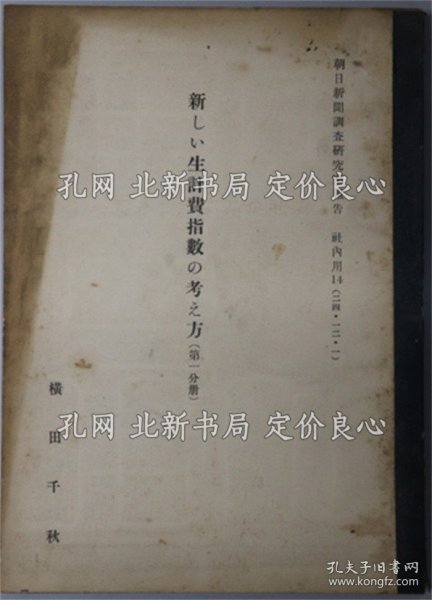 朝日新聞調査研究 告 社内用14(二四・一二・一)
新しい生計費指数の考え方(第一分册)
横田千秋
孔网 北新书局 定价良心
孔网 北新书局 定价良心
孔网 北新书局 定价良心
孔夫子旧书网
www.kongfz.com